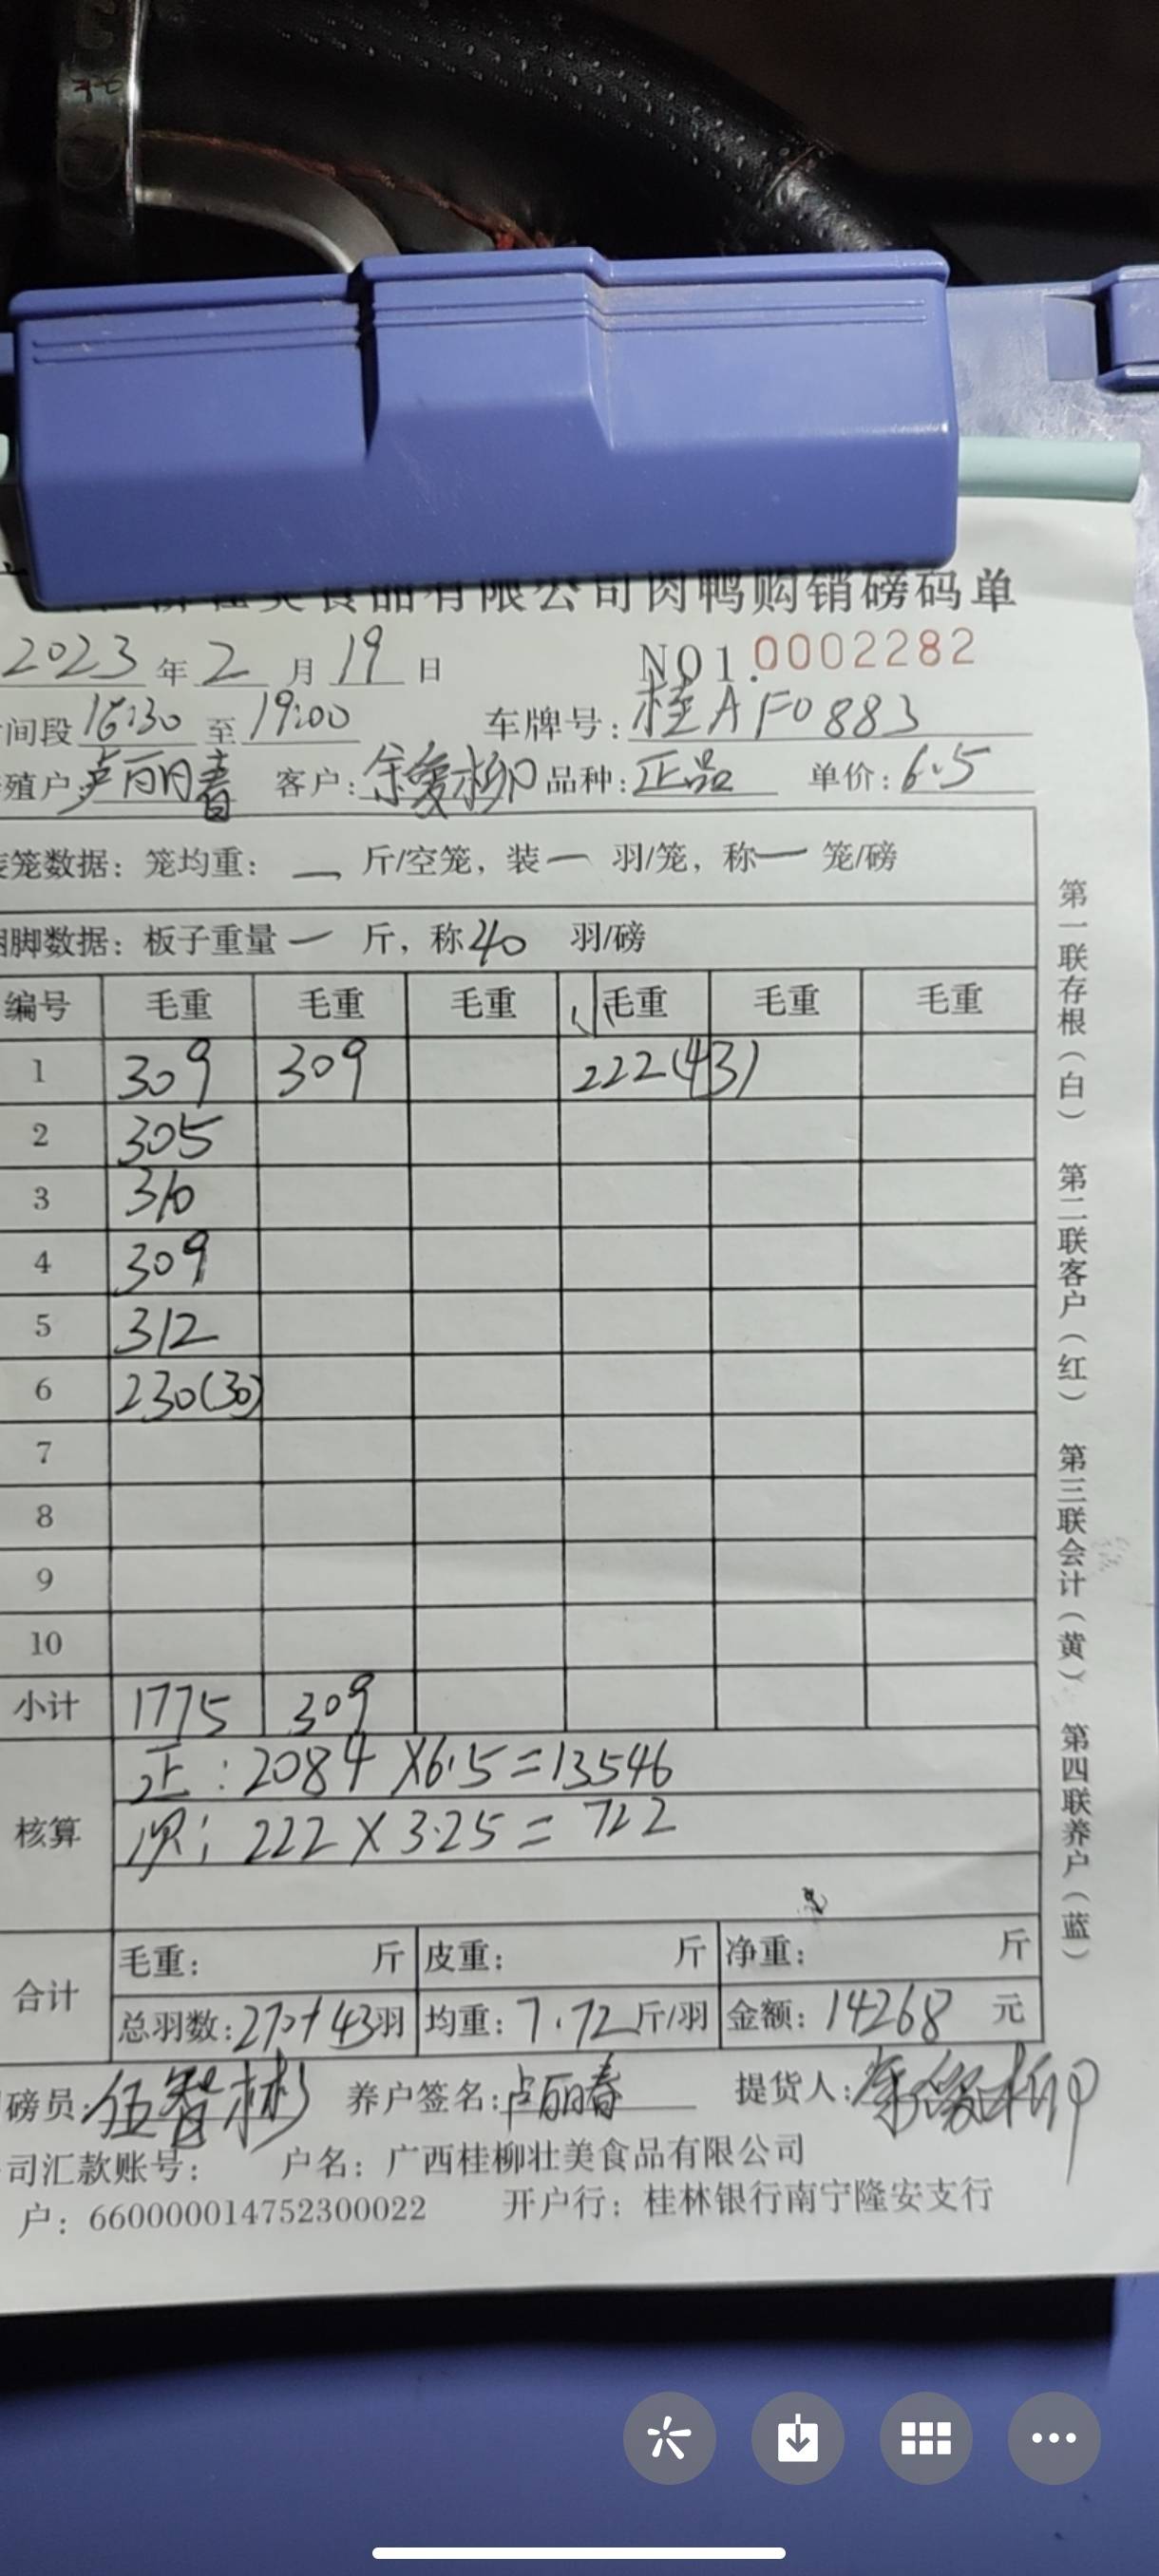 食品有限公司肉鸭购销磅码单
2023年2月19日 NO1.0002282
间段16:30至19:00 车牌号:桂AF0883
殖户:卢丽春 客户:余爱柳 品种:正品 单价:6.5
笼数据:笼均重:— 斤/空笼,装— 羽/笼,称— 笼/磅
脚数据:板子重量— 斤,称40 羽/磅
编号 毛重 毛重 毛重 毛重 毛重 毛重
1 309 309 222(43)
2 305
3 310
4 309
5 312
6 230(30)
7
8
9
10
小计 1775 309
核算
正:2084×6.5=13546
次:222×3.25=722
合计
毛重: 斤 皮重: 斤 净重: 斤
总羽数:270+43羽 均重:7.72斤/羽 金额:14268 元
磅员:伍智彬 养户签名:卢丽春 提货人:余爱柳
司汇款账号: 户名:广西桂柳壮美食品有限公司
户:660000014752300022 开户行:桂林银行南宁隆安支行
第一联存根(白) 第二联客户(红) 第三联会计(黄) 第四联养户(蓝)